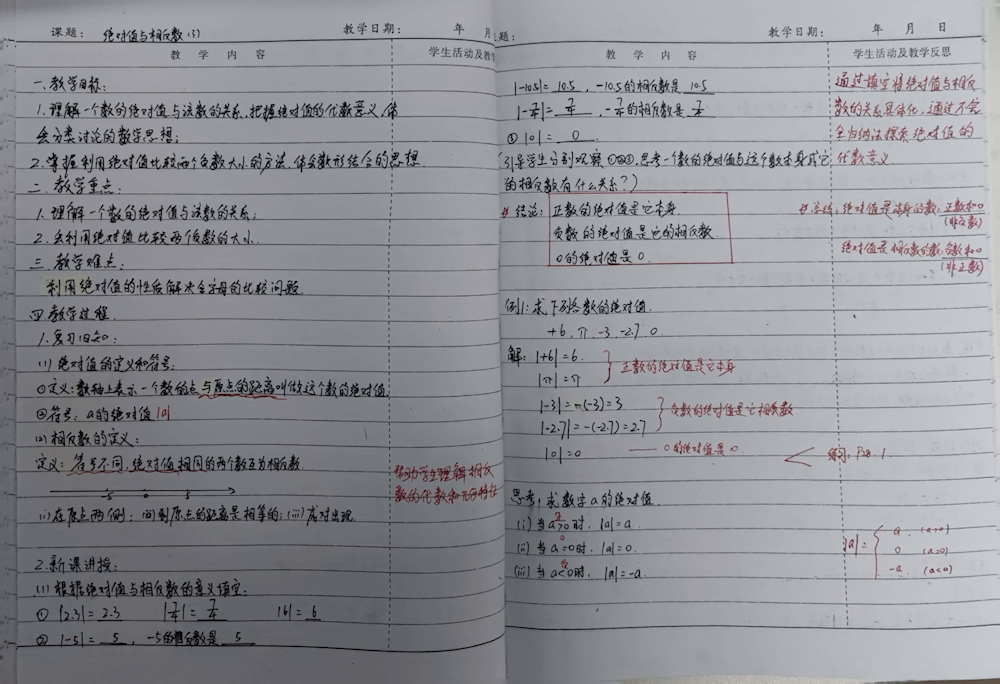 课题: 绝对值与相反数(3)
教学日期: 年 月
教 学 内 容
学生活动及教学
一、教学目标:
1.理解一个数的绝对值与该数的关系,把握绝对值的代数意义,体
会分类讨论的数学思想;
2.掌握利用绝对值比较两个负数大小的方法,体会数形结合的思想.
二、教学重点:
1.理解一个数的绝对值与该数的关系;
2.会利用绝对值比较两个负数的大小.
三、教学难点:
利用绝对值的性质解决含字母的比较问题.
四、教学过程.
1.复习旧知:
(1) 绝对值的定义和符号.
①定义:数轴上表示一个数的点与原点的距离叫做这个数的绝对值.
②符号: a的绝对值 |a|
(2) 相反数的定义:
定义: 符号不同,绝对值相同的两个数互为相反数
-5 0 5
(i) 在原点两侧; (ii) 到原点的距离是相等的; (iii) 成对出现.
帮助学生理解相反
数的代数和几何特征
2.新课讲授:
(1) 根据绝对值与相反数的意义填空:
① |2.3|= 2.3 |7/4|= 7/4 |6|= 6
② |-5|= 5 , -5的相反数是 5
题:
教学日期: 年 月 日
教 学 内 容
学生活动及教学反思
|-10.5|= 10.5 , -10.5的相反数是 10.5
|-7/4|= 7/4 , -7/4的相反数是 7/4
③ |0|= 0
通过填空将绝对值与相反
数的关系具体化,通过不完
全归纳法探索绝对值的
代数意义
引导学生分别观察①②③,思考一个数的绝对值与这个数本身或它
的相反数有什么关系?)
结论: 正数的绝对值是它本身
负数的绝对值是它的相反数.
0的绝对值是0.
总结: 绝对值是本身的数: 正数和0
(非负数)
绝对值是相反数的数: 负数和0
(非正数)
例1:求下列各数的绝对值.
+6, π, -3, -2.7, 0.
解: |+6|=6.
|π|=π
正数的绝对值是它本身
|-3|=-(-3)=3
|-2.7|=-(-2.7)=2.7
负数的绝对值是它相反数
|0|=0
0的绝对值是0.
练习: 1
思考: 求数字a的绝对值.
(i) 当a>0时, |a|=a.
正
(ii) 当a=0时, |a|=0.
0
(iii) 当a<0时, |a|=-a.
负
|a|= { a (a>0)
0 (a=0)
-a (a<0)